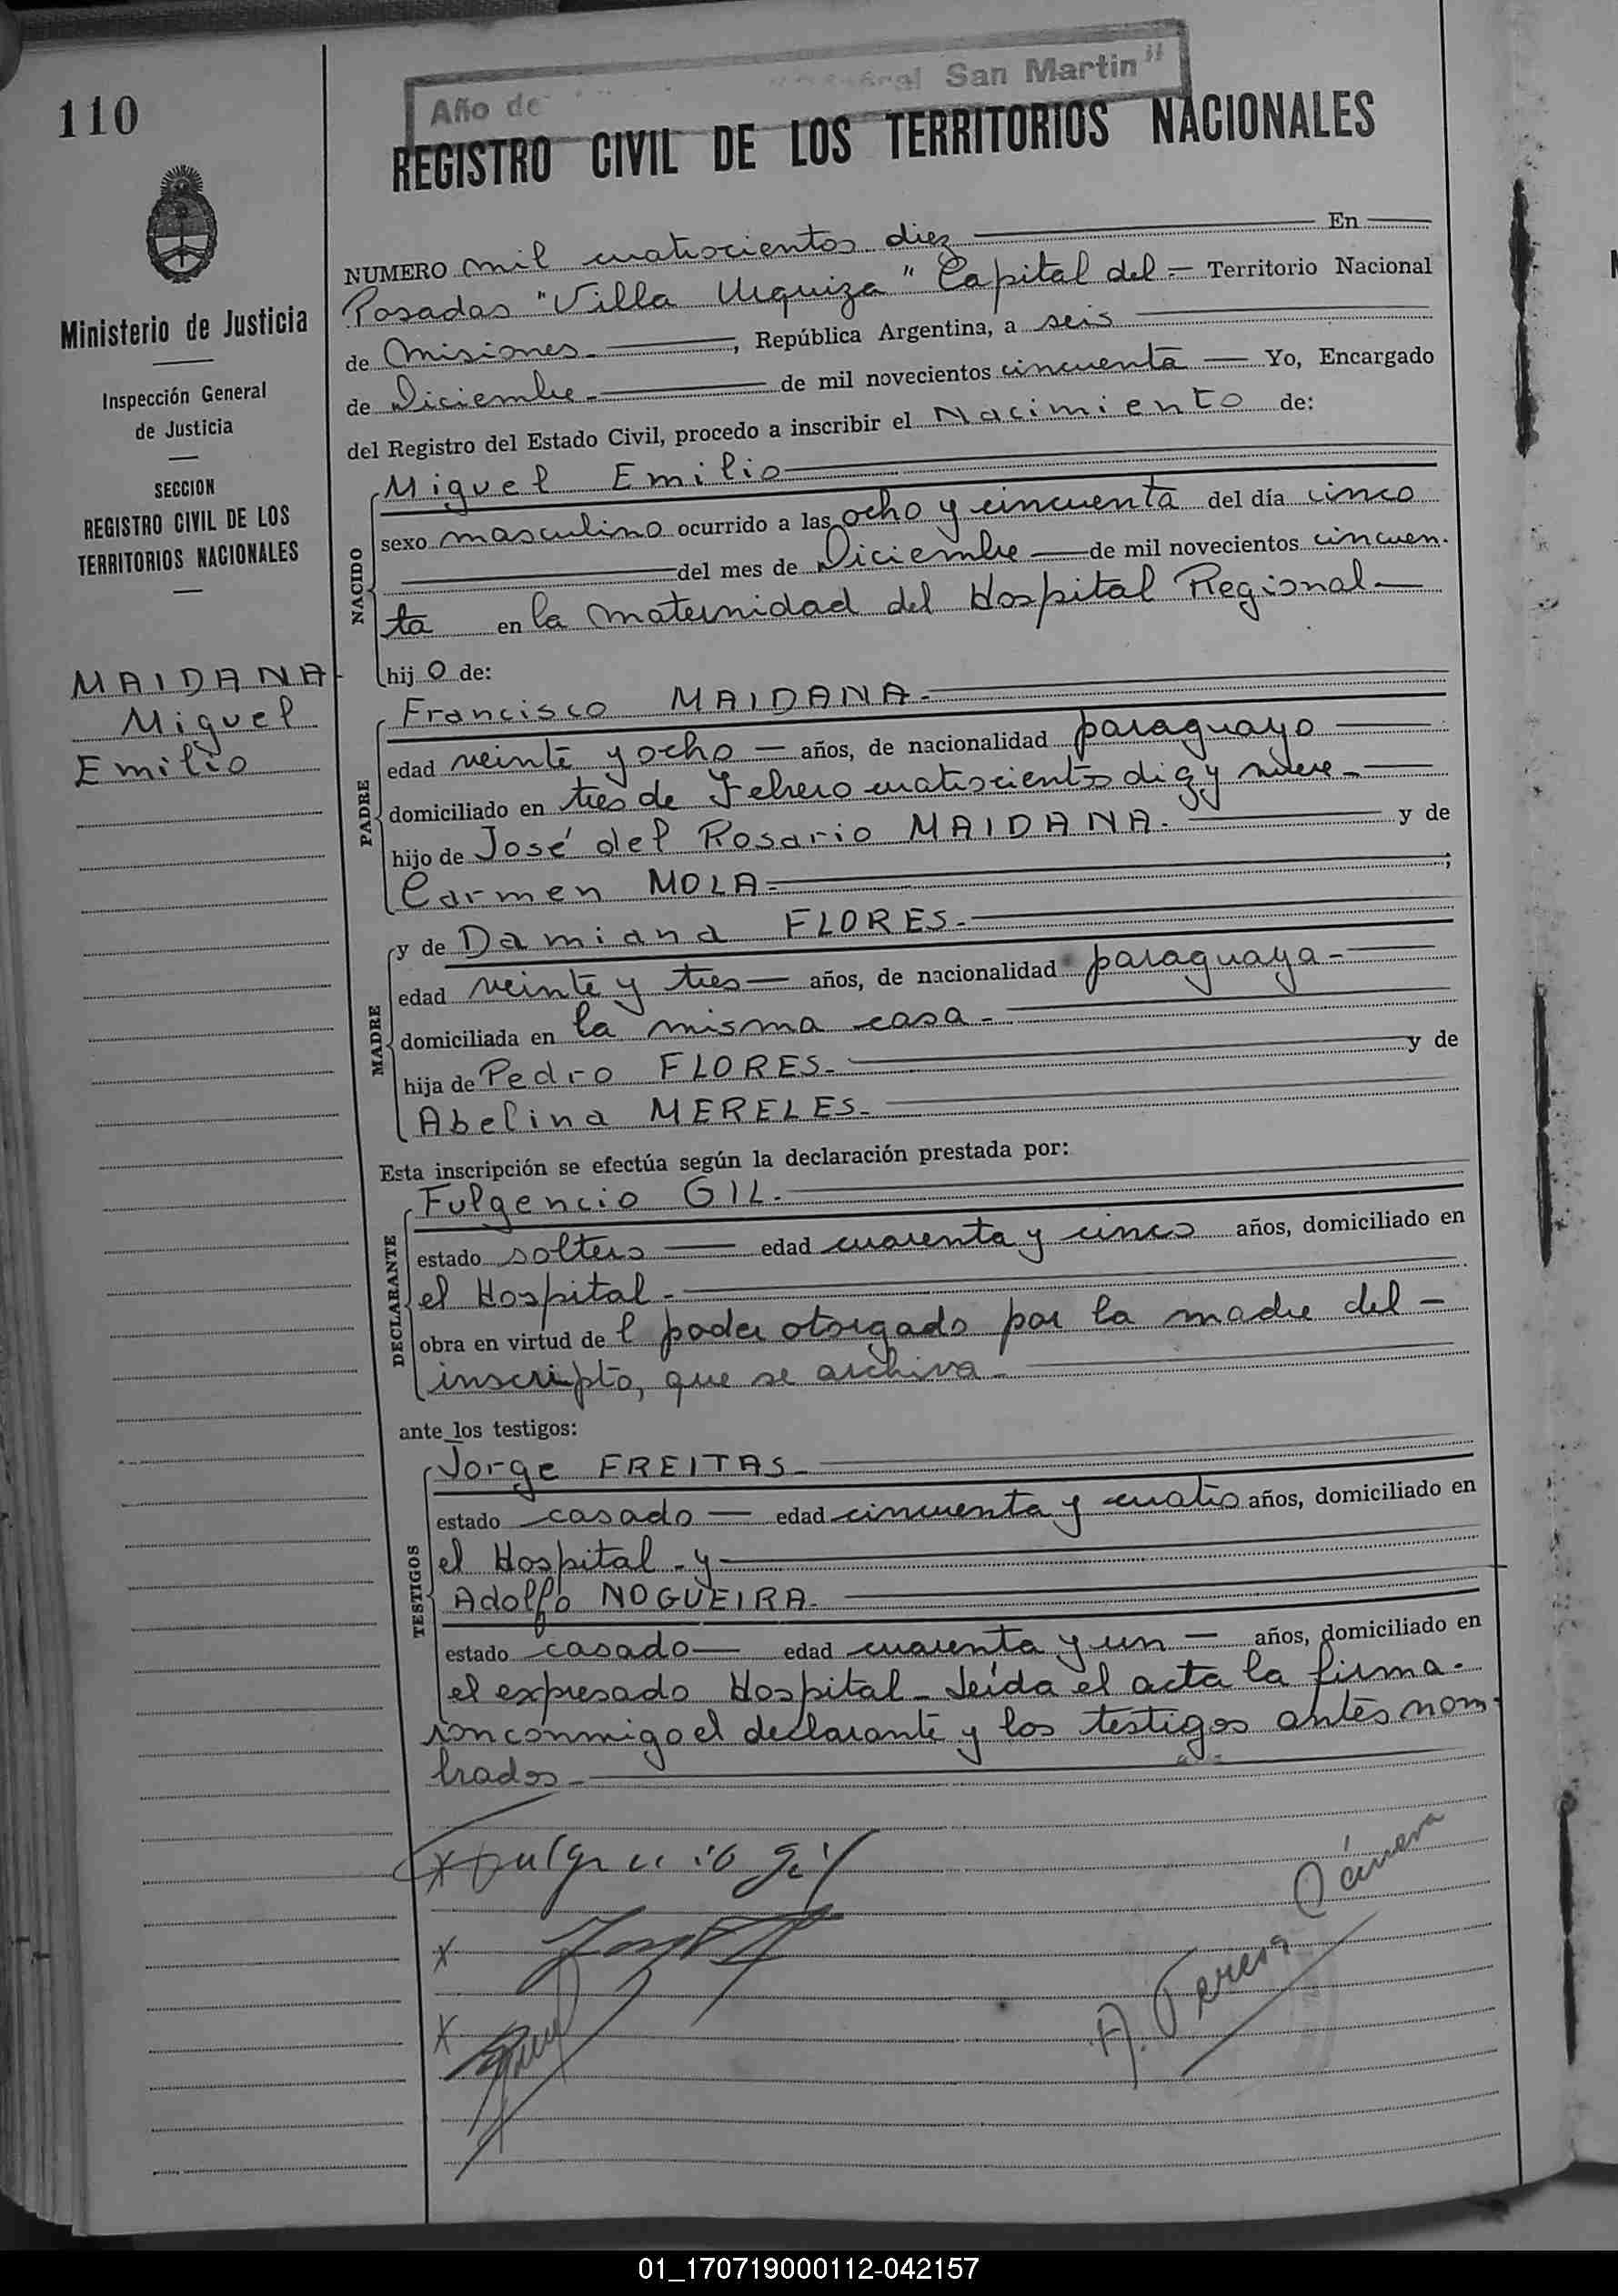 110
Año de General San Martin"
REGISTRO CIVIL DE LOS TERRITORIOS NACIONALES
Ministerio de Justicia
Inspección General
de Justicia
SECCION
REGISTRO CIVIL DE LOS
TERRITORIOS NACIONALES
MAIDANA
Miguel
Emilio
NUMERO mil cuatrocientos diez En
Posadas "Villa Urquiza" Capital del - Territorio Nacional
de Misiones - , República Argentina, a seis
de Diciembre - de mil novecientos cincuenta - Yo, Encargado
del Registro del Estado Civil, procedo a inscribir el Nacimiento de:
NACIDO
Miguel Emilio
sexo masculino ocurrido a las ocho y cincuenta del día cinco
del mes de Diciembre - de mil novecientos cincuen-
ta en la maternidad del Hospital Regional -
hij o de:
PADRE
Francisco MAIDANA -
edad veinte y ocho - años, de nacionalidad paraguayo
domiciliado en tres de Febrero cuatrocientos diez y nueve -
hijo de José del Rosario MAIDANA - y de
Carmen MOLA - ;
MADRE
y de Damiana FLORES -
edad veinte y tres - años, de nacionalidad paraguaya -
domiciliada en la misma casa -
hija de Pedro FLORES - y de
Abelina MERELES -
Esta inscripción se efectúa según la declaración prestada por:
DECLARANTE
Fulgencio GIL -
estado soltero - edad cuarenta y cinco años, domiciliado en
el Hospital -
obra en virtud de l poder otorgado por la madre del -
inscripto, que se archiva -
ante los testigos:
TESTIGOS
Jorge FREITAS -
estado casado - edad cincuenta y cuatro años, domiciliado en
el Hospital - y
Adolfo NOGUEIRA -
estado casado - edad cuarenta y un - años, domiciliado en
el expresado Hospital - Leída el acta la firma-
ron conmigo el declarante y los testigos antes nom-
brados -
x Fulgencio gil
x
x
A. Teresa Cámera
01_170719000112-042157